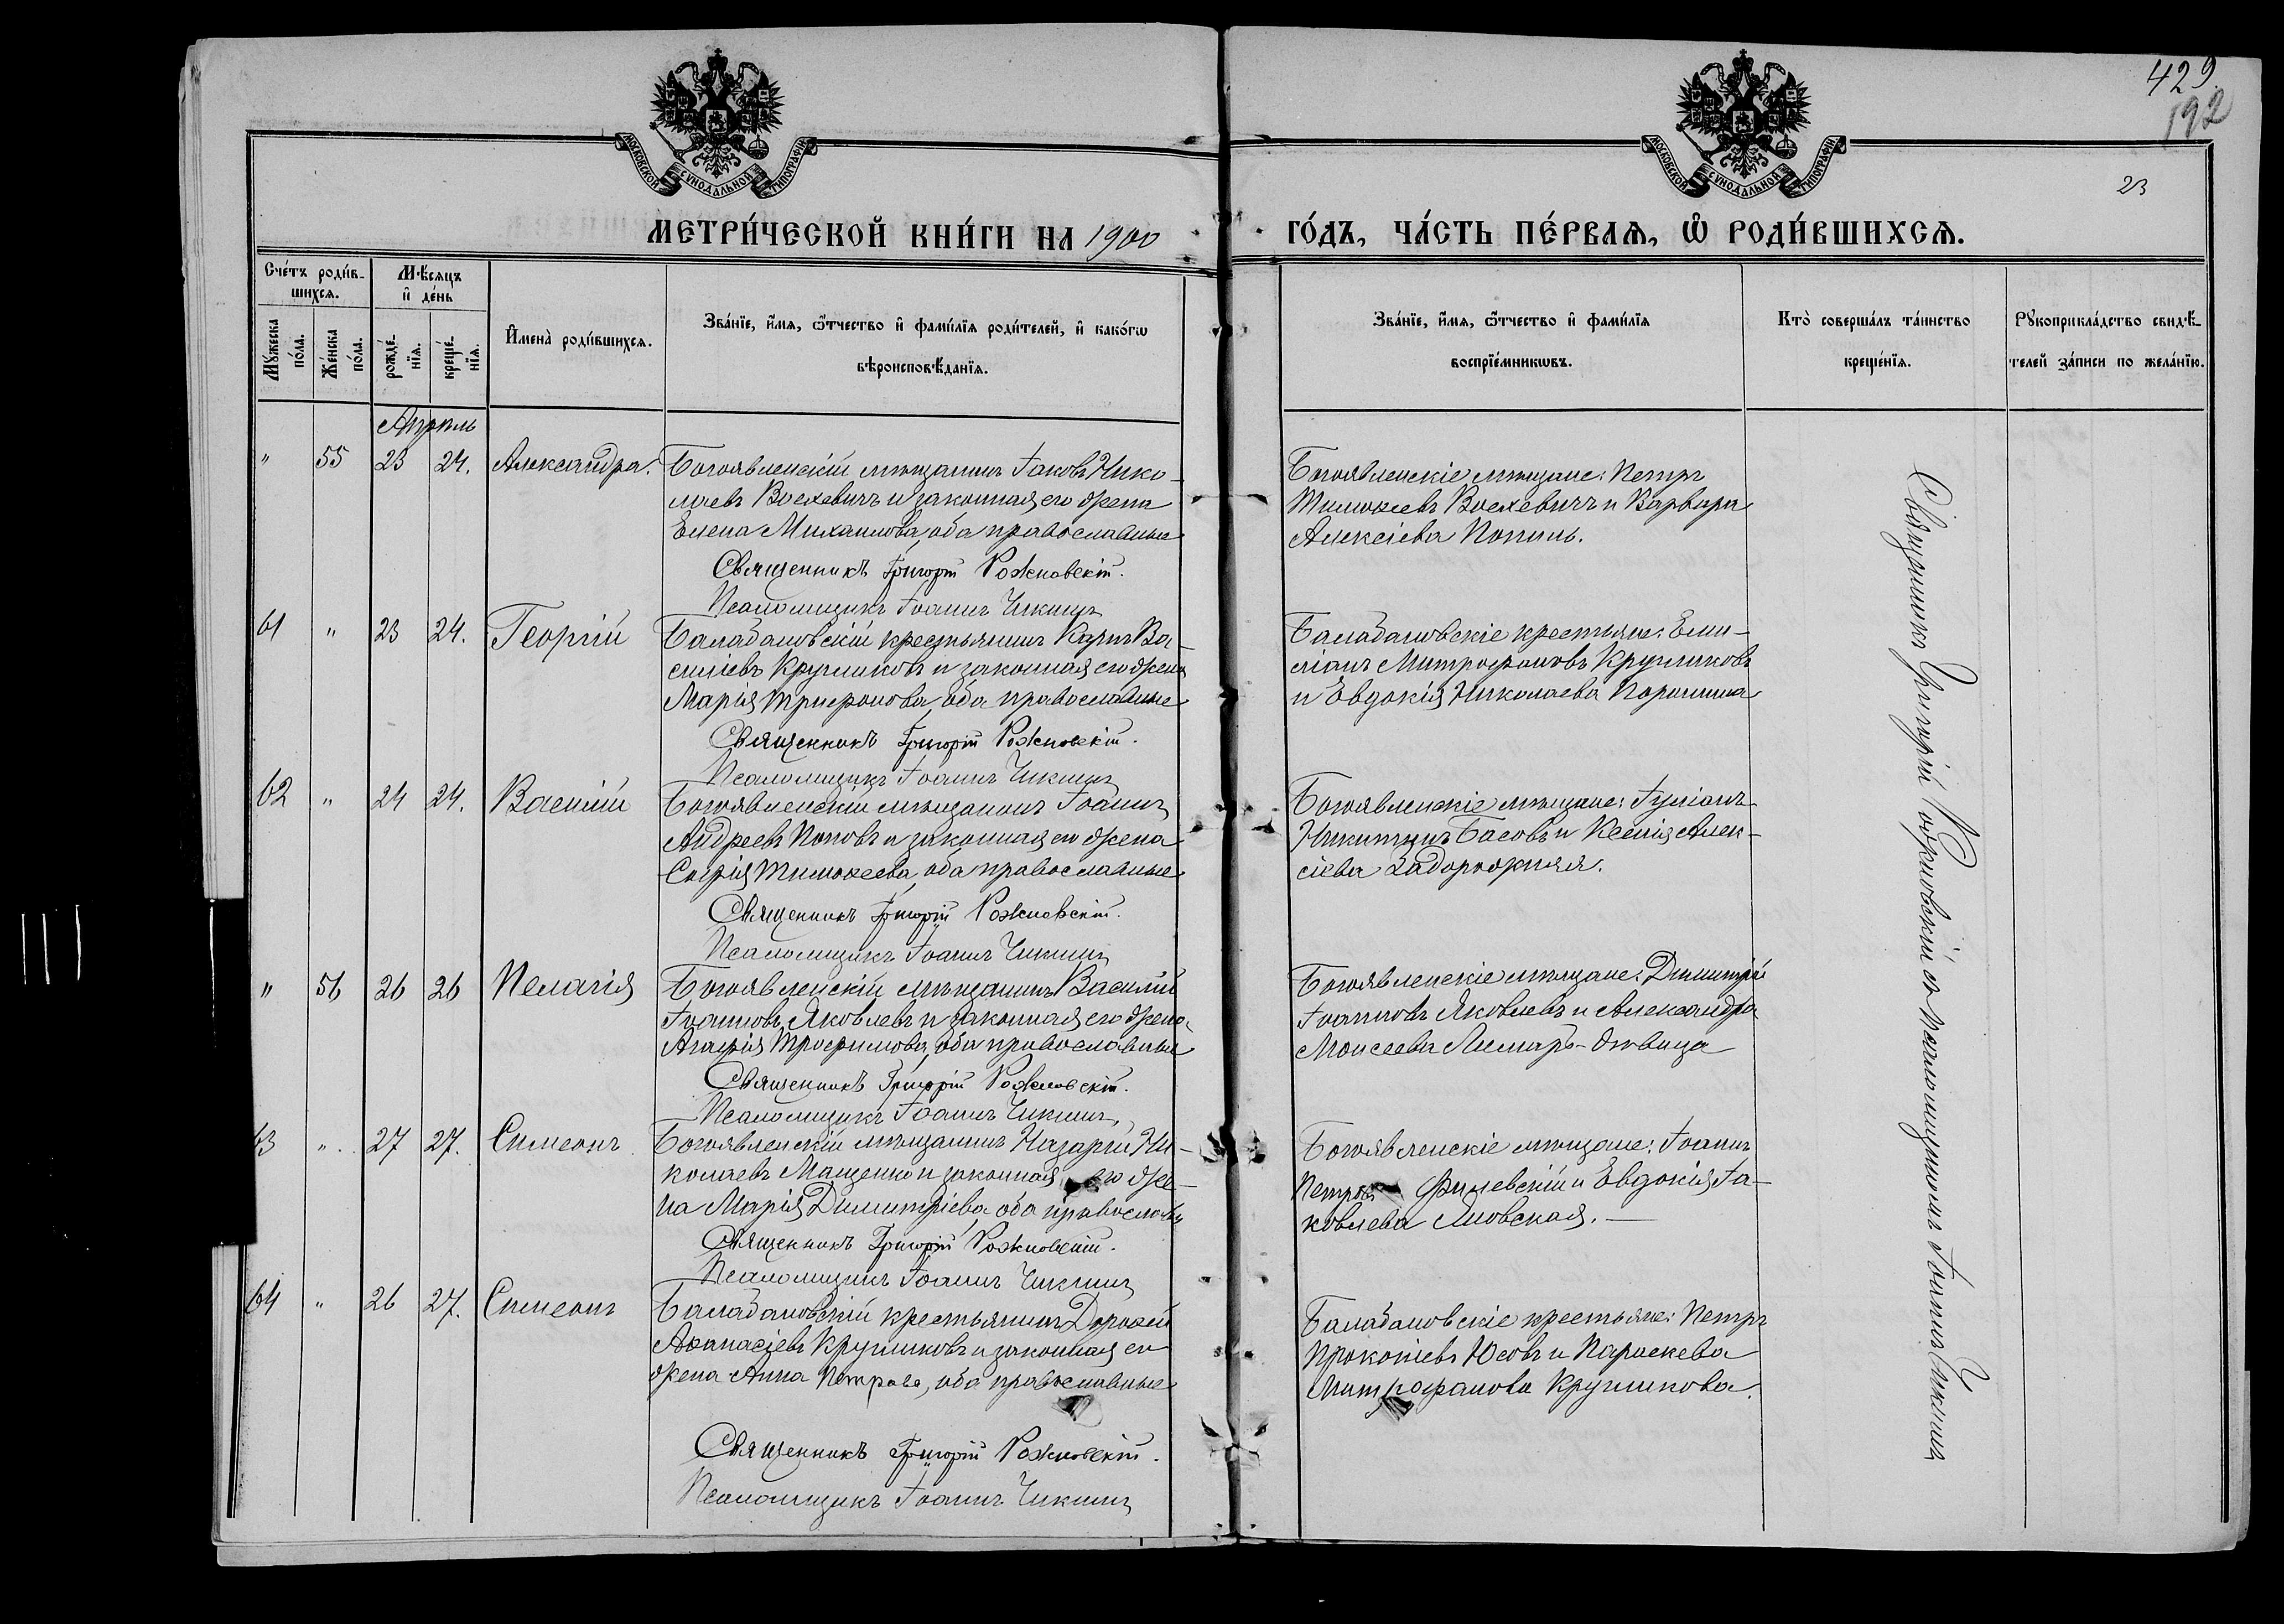 429
192
23
МОСКОВСКОЙ СѴНОДАЛЬНОЙ ТИПОГРАФІИ
МОСКОВСКОЙ СѴНОДАЛЬНОЙ ТИПОГРАФІИ
МЕТРИ́ЧЕСКОЙ КНИ́ГИ НА 1900
ГО́ДЪ, ЧА́СТЬ ПЕ́РВАѦ, Ѡ҆ РОДИ́ВШИХСѦ.
Сче́тъ роди́в-
шихсѧ.
Мꙋ́жеска
по́ла.
Же́нска
по́ла.
Мѣ́сѧцъ
и҆ де́нь
рожде́-
нїѧ.
креще́-
нїѧ.
И҆мена̀ роди́вшихсѧ.
Зва́нїе, и҆́мѧ, ѻ҆́тчество и҆ фами́лїѧ роди́телей, и҆ како́гѡ
вѣроисповѣ́данїѧ.
Зва́нїе, и҆́мѧ, ѻ҆́тчество и҆ фами́лїѧ
воспрїе́мникѡвъ.
Кто̀ соверша́лъ та́инство
креще́нїѧ.
Рꙋкоприкла́дство свидѣ́-
телей за́писи по жела́нїю.
Апрѣль
" 55 23 24. Александра.
Богоявленскій мѣщанинъ Іаковъ Нико-
лаевъ Воехевичъ и законная его жена
Елена Михаилова, оба православные
Священникъ Григорій Рожновскій.
Псаломщикъ Іоаннъ Чикинъ
Богоявленскіе мѣщане: Петръ
Тимоѳеевъ Воехевичъ и Варвара
Алексіева Попиль.
61 " 23 24. Георгій
Балабановскій крестьянинъ Карпъ Ва-
силіевъ Кругликовъ и законная его жена
Марія Трифонова, оба православные
Священникъ Григорій Рожновскій.
Псаломщикъ Іоаннъ Чикинъ
Балабановскіе крестьяне: Еми-
ліанъ Митрофановъ Кругликовъ
и Евдокія Николаева Порошина
62 " 24 24. Василій
Богоявленскій мѣщанинъ Іоаннъ
Андреевъ Поповъ и законная его жена
Софія Тимоѳеева, оба православные
Священникъ Григорій Рожновскій.
Псаломщикъ Іоаннъ Чикинъ
Богоявленскіе мѣщане: Іуліанъ
Никитинъ Басовъ и Ксенія Алек-
сіева Задорожняя.
" 56 26 26 Пелагія
Богоявленскій мѣщанинъ Василій
Іоанновъ Яковлевъ и законная его жена
Агафія Трофимова, оба православные
Священникъ Григорій Рожновскій.
Псаломщикъ Іоаннъ Чикинъ
Богоявленскіе мѣщане: Димитрій
Іоанновъ Яковлевъ и Александра
Моисеева Лимарь-дѣвица
63 " 27 27. Симеонъ
Богоявленскій мѣщанинъ Назарій Ни-
колаевъ Мащенко и законная его же-
на Марія Димитріева, оба православны
Священникъ Григорій Рожновскій.
Псаломщикъ Іоаннъ Чикинъ
Богоявленскіе мѣщане: Іоаннъ
Петровъ Филевскій и Евдокія Іа-
ковлева Яновская.
64 " 26 27. Симеонъ
Балабановскій крестьянинъ Дороѳей
Аѳанасіевъ Кругликовъ и законная его
жена Анна Петрова, оба православные
Священникъ Григорій Рожновскій.
Псаломщикъ Іоаннъ Чикинъ
Балабановскіе крестьяне: Петръ
Прокопіевъ Юсовъ и Параскева
Митрофанова Кругликова.
Священникъ Григорій Рожновскій съ псаломщикомъ Іоанномъ Чикинымъ